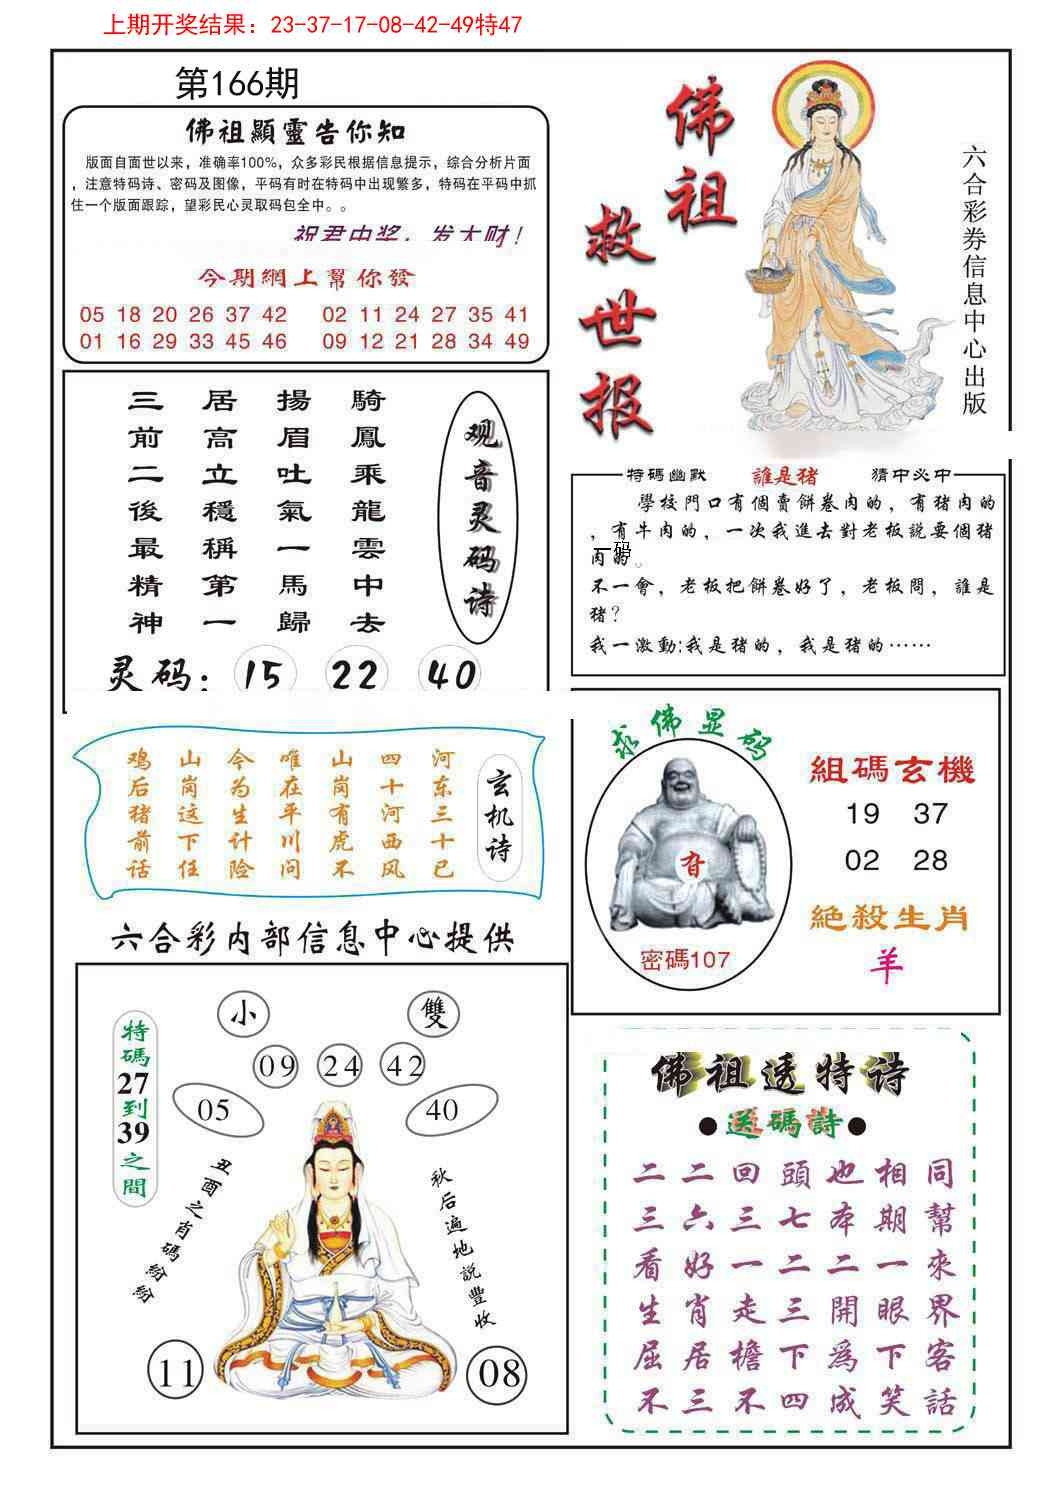 上期开奖结果：23-37-17-08-42-49特47
第166期
佛祖顯靈告你知
版面自面世以来，准确率100%，众多彩民根据信息提示，综合分析片面
，注意特码诗、密码及图像，平码有时在特码中出现繁多，特码在平码中抓
住一个版面跟踪，望彩民心灵取码包全中。。
祝君中奖，发大财！
今期網上幫你發
05 18 20 26 37 42 02 11 24 27 35 41
01 16 29 33 45 46 09 12 21 28 34 49
佛祖
救世报
六合彩券信息中心出版
騎鳳乘龍雲中去
揚眉吐氣一馬歸
居高立穩稱第一
三前二後最精神
观音灵码诗
灵码： 15 22 40
特碼幽默 誰是猪 猜中必中
學校門口有個賣餅卷肉的，有猪肉的
，有牛肉的，一次我進去對老板説要個猪
肉的
一码
不一會，老板把餅卷好了，老板問，誰是
猪？
我一激動:我是猪的，我是猪的……
玄机诗
河东三十已
四十河西风
山岗有虎不
唯在平川问
今为生计险
山岗这下任
鸡后猪前话
求佛显码
密碼107
組碼玄機
19 37
02 28
絕殺生肖
羊
六合彩内部信息中心提供
特碼27到39之間
小 雙
09 24 42
05 40
丑酉之肖碼紛紛
秋后遍地説豐收
11 08
佛祖透特诗
●送碼詩●
二二回頭也相同
三六三七本期幫
看好一二二一來
生肖走三開眼界
屈居檐下爲下客
不三不四成笑話